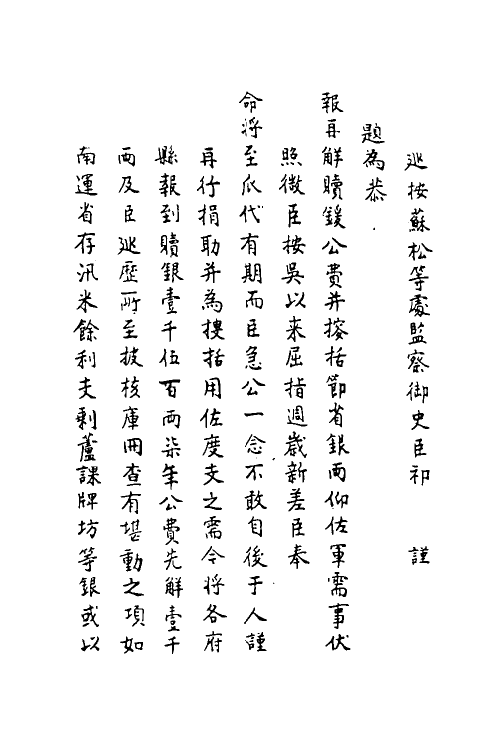 巡按蘇松等處監察御史臣祁 謹
題為恭
報再解贖鍰公費并搜括節省銀兩仰佐軍需事伏
照微臣按吳以来屈指週歲新差臣奉
命將至瓜代有期而臣急公一念不敢自後于人謹
再行捐助并為搜括用佐度支之需今將各府
縣報到贖銀壹千伍百兩柒年公費先解壹千
兩及臣巡歷所至披核庫冊查有堪動之項如
南運省存汛米餘利夫剩蘆課牌坊等銀或以